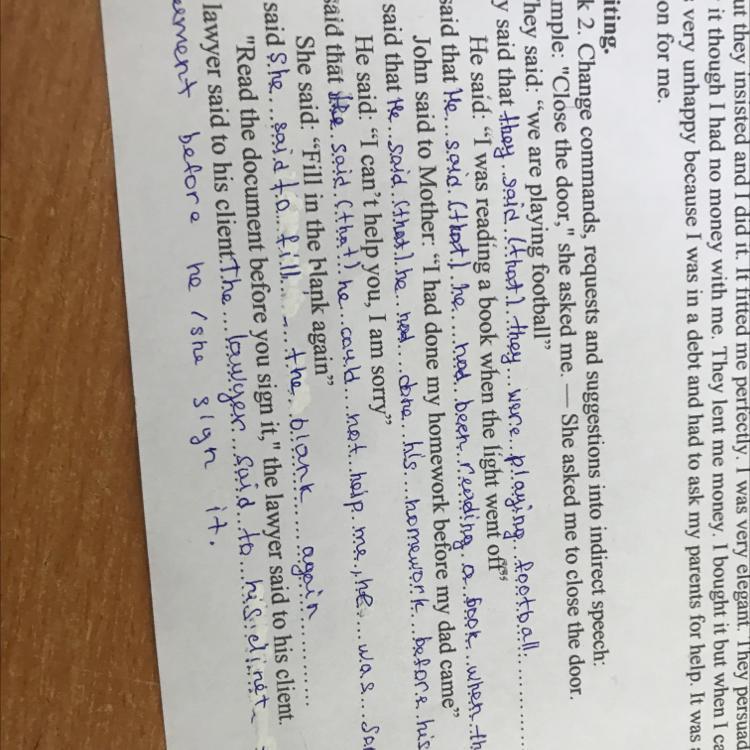 ut they insisted and I did it. It fitted me perfectly. I was very elegant. They persuad
it though I had no money with me. They lent me money. I bought it but when I ca
very unhappy because I was in a debt and had to ask my parents for help. It was a
on for me.
iting.
k 2. Change commands, requests and suggestions into indirect speech:
mple: "Close the door," she asked me. — She asked me to close the door.
hey said: “we are playing football”
y said that they said (that) they were playing football
He said: “I was reading a book when the light went off”
said that He said (that) he had been reading a book when th
John said to Mother: “I had done my homework before my dad came”
said that He said (that) he had done his homework before his
He said: “I can’t help you, I am sorry”
said that He said (that) he could not help me, he was
She said: “Fill in the blank again”
said she said to fill the blank again
"Read the document before you sign it," the lawyer said to his client.
lawyer said to his client The lawyer said to his clinet
eement before he/she sign it.